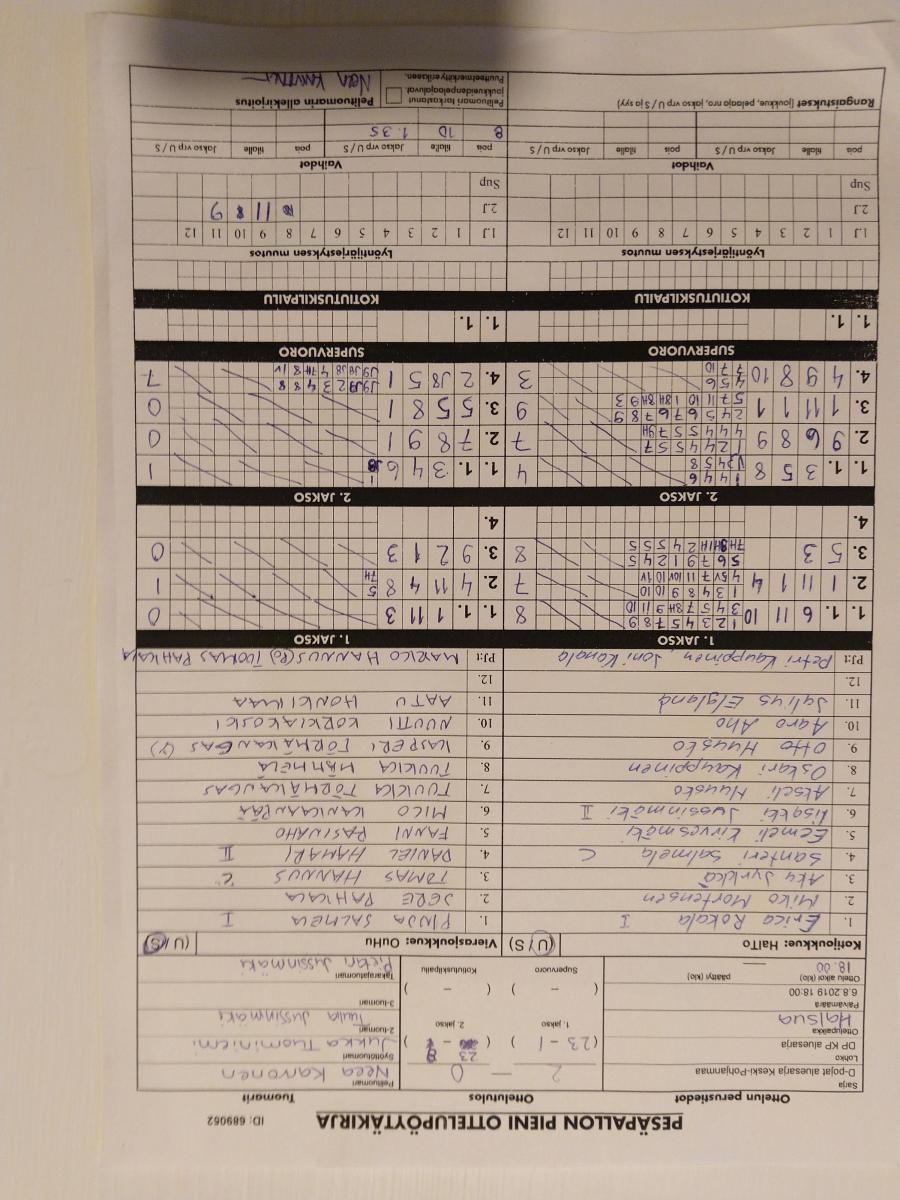 PESÄPALLON PIENI OTTELUPÖYTÄKIRJA
ID: 689062
Ottelun perustiedot
Sarja
D-pojat aluesarja Keski-Pohjanmaa
Lohko
DP KP aluesarja
Ottelupaikka
Halsua
Päivämäärä
6.8.2019 18:00
Ottelu alkoi (klo)
18.00
päättyi (klo)
Ottelutulos
2 — 0
(23 - 1)
1. jakso
2. jakso
( - )
( - )
Supervuoro
Kotiutuskilpailu
Tuomarit
Pelituomari
Neea Karvonen
Syöttötuomari
Jukka Tuominiemi
2-tuomari
Tuula Jussinmäki
3-tuomari
Takarajatuomari
Pietari Jussinmäki
Kotijoukkue: HalTo (U / S)
1. Erica Rokala I
2. Miko Mortensen
3. Aku Jyrkkä
4. Santeri Salmela C
5. Eemeli Kirvesmäki
6. Iisakki Jussinmäki II
7. Akseli Huusko
8. Oskari Kauppinen
9. Otto Huusko
10. Aaro Aho
11. Julius Elgland
12.
PJ:t Petri Kauppinen, Joni Kanala
Vierasjoukkue: OuHu (U / S)
1. PINJA SALMELA I
2. JERE PAHKALA
3. TOMAS HANNUS C
4. DANIEL HAMARI II
5. FANNI PASINAHO
6. MICO KANKAANPÄÄ
7. TUUKKA TÖRMÄKANGAS
8. TUUKKA MÄMMELÄ
9. KASPERI TÖRMÄKANGAS
10. NUUTTI KORKIAKOSKI
11. AATU HONKIMAA
12.
PJ:t MARKO HANNUS TUOMAS PAHKALA
1. JAKSO
1. 1. 6 11 10
1 2 3 4 5 7 8 9
3 4 5 7 8H 9 11 10
8
2. 1 11 1 4
1 3 4 8 9 10 10
4 5V 7 11 10V 10 1V
7
3. 5 3
5 6 7 9 1 2 4 5
7H 8H 1H 2 4 5 5 5
8
4.
1. JAKSO
1. 1. 1 11 3
0
2. 4 11 4 8
5
7H
1
3. 9 2 1 3
0
4.
2. JAKSO
1. 1. 3 5 8
1 4 4 6
4
2. 9 6 8 9
1 2 4 4 5 5 7
4 4 4 5 5 7 9H
7
3. 1 11 1 1
2 4 5 6 7 6 7 8 9
5 7 11 10 1 8H 8H 9 3
9
4. 4 9 8 10
4 5 6
7 7 10
3
2. JAKSO
1. 1. 3 4 6
1
2. 7 8 9 1
0
3. 5 5 8 1
0
4. 2 J8 5 1
J9 J9 2 3 4 8 8
J9 J8 J8 4 7H 8 1V
7
SUPERVUORO
1. 1.
SUPERVUORO
1. 1.
KOTIUTUSKILPAILU
KOTIUTUSKILPAILU
Lyöntijärjestyksen muutos
1.J 1 2 3 4 5 6 7 8 9 10 11 12
2.J
Sup
Lyöntijärjestyksen muutos
1.J 1 2 3 4 5 6 7 8 9 10 11 12
2.J 11 8 9
Sup
Vaihdot
pois tilalle Jakso vrp U / S pois tilalle Jakso vrp U / S
Vaihdot
pois tilalle Jakso vrp U / S pois tilalle Jakso vrp U / S
8 10 1. 3 S
Rangaistukset (joukkue, pelaaja nro, jakso vrp U / S ja syy)
Pelituomari tarkastanut
joukkueidenpelaajaluvat
Puutteet merkitty erikseen.
Pelituomarin allekirjoitus
Neea Karvonen